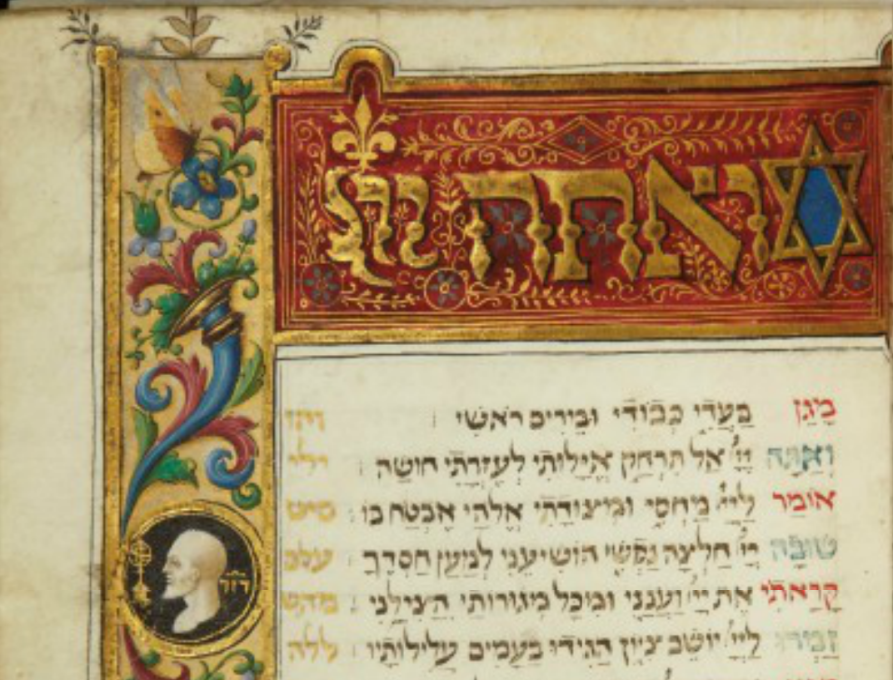 ואתה יי
מָגֵן בַּעֲדִי כְּבוֹדִי וּמֵרִים רֹאשִׁי והו
וְאַתָּה יְיָ אַל תִּרְחָק אֱיָלוּתִי לְעֶזְרָתִי חוּשָׁה ילי
אוֹמַר לַיְיָ מַחְסִי וּמְצוּדָתִי אֱלֹהַי אֶבְטַח בּוֹ סיט
שׁוּבָה יְיָ חַלְּצָה נַפְשִׁי הוֹשִׁיעֵנִי לְמַעַן חַסְדֶּךָ עלם
קָרָאתִי אֶת יְיָ וַעֲנֵנִי וּמִכָּל מְגוּרוֹתַי הִצִּילָנִי מהש
זַמְּרוּ לַיְיָ יוֹשֵׁב צִיּוֹן הַגִּידוּ בָעַמִּים עֲלִילוֹתָיו ללה
דוד